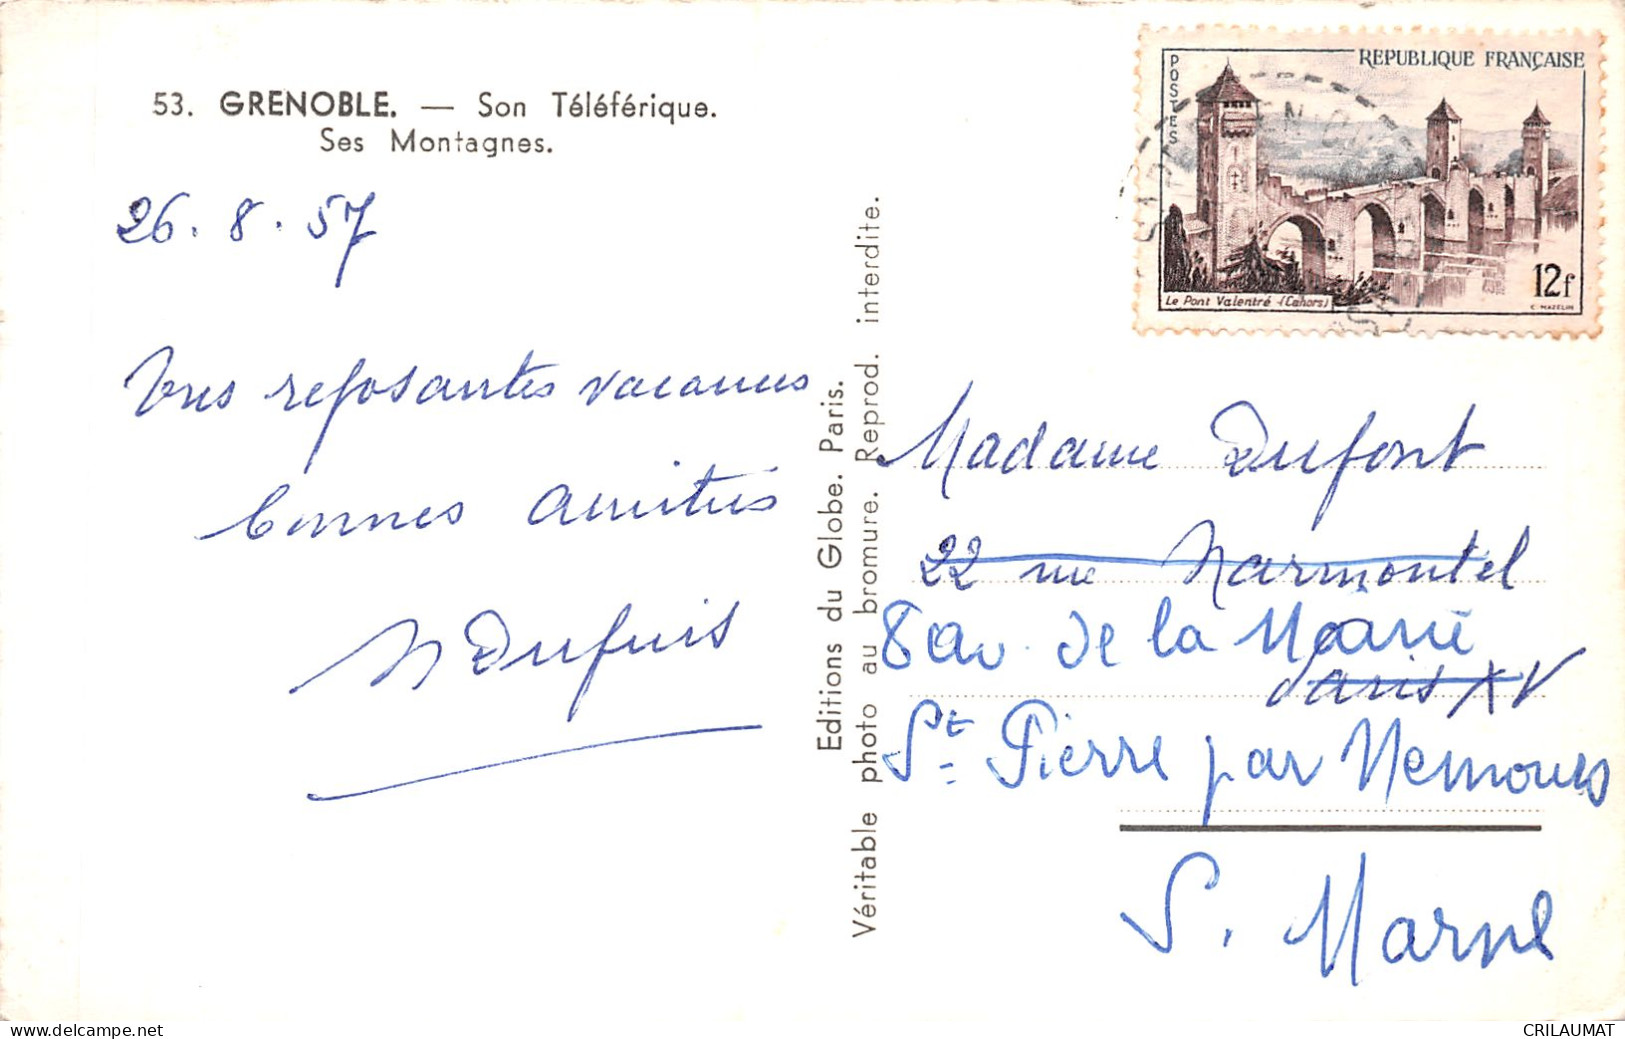 53. GRENOBLE. — Son Téléférique.
Ses Montagnes.
26.8.57
Très reposantes vacances
bonnes amitiés
Editions du Globe. Paris.
Véritable photo au bromure. Reprod. interdite.
REPUBLIQUE FRANÇAISE
POSTES
12f
Le Pont Valentré - (Cahors)
C. MAZELIN
Madame Dupont
22 rue Marmontel
8 av. de la Mairie
Paris XV
St. Pierre par Nemours
S. Marne
delcampe.net
CRILAUMAT